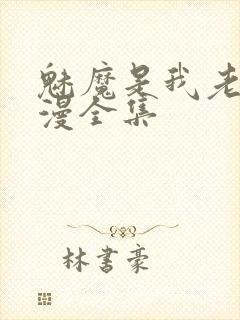 魅魔是我老
漫全集
林書豪